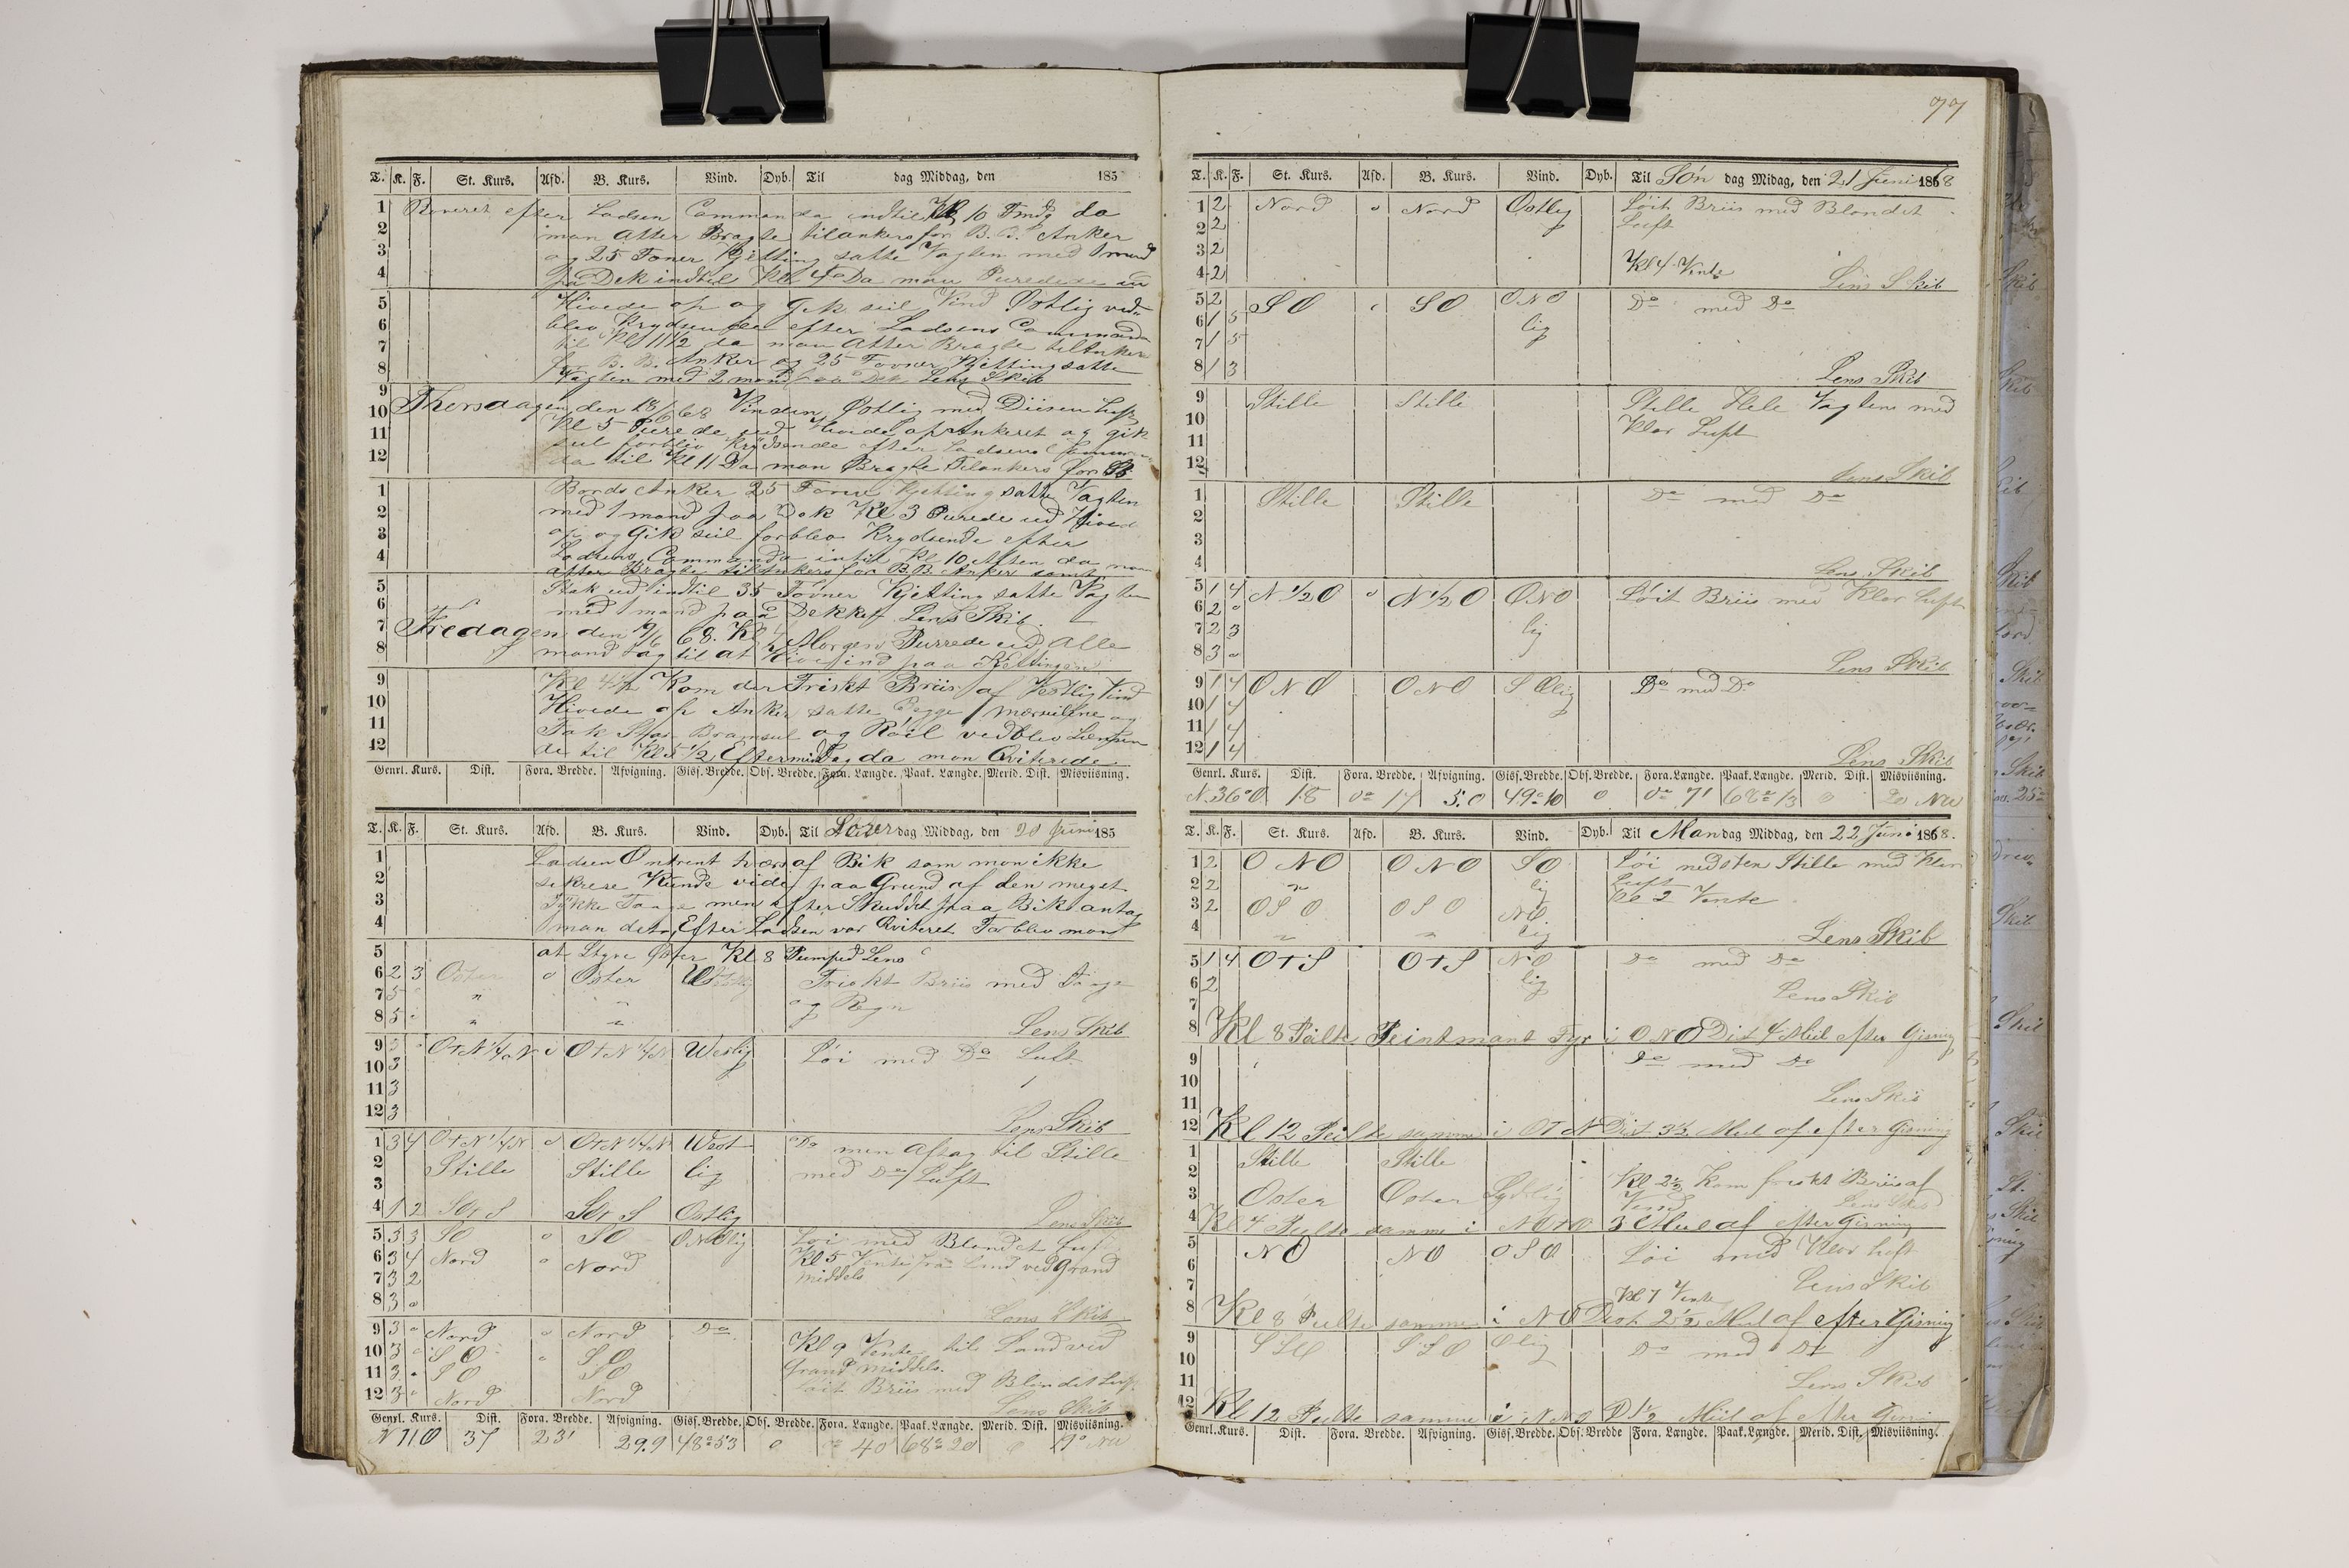 77
T. K. F. St. Kurs. Afd. B. Kurs. Vind. Dyb. Til dag Middag, den 185
1 efter Ladsen Commanda indtil Kl 10 Fmdg da
2 man Atter Bragte tilankers for B. B. Anker
3 og 25 Favner Kjetting satte Vagten med 1 mand
4 paa Dek indtil Kl 4 Da man Purrede ud
5 Hivede op og Gik seil Vind Ostlig ved
6 blev Krydsende efter Ladsens Commanda
7 til Kl 11 1/2 da man Atter Bragte tilAnkers
8 for B. B. Anker og 25 Favner Kjetting satte
Vagten med 2 mand paa Dek Lens Skib
9
10 Thorsdagen den 18/6 68 Vinden Ostlig med Diisen Luft
11 Kl 5 Purrede ud Hivede op Ankeret og gik
12 seil forblev Krydsende efter Ladsens
da til Kl 11 Da man Bragte Tilankers for St
1 Bords Anker 25 Favne Kjetting satte Vagten
2 med 1 mand paa Dek Kl 3 Purede ud Hivede
3 op og Gik seil forblev Krydsende efter
4 Ladsens Commanda intil Kl 10 Aften da man
atter Bragte tilAnkers for B.B. Anker samt
5 Stak ud indtil 35 Favner Kjetting satte Vagten
6 med 1 mand paa Dekket Lens Skib.
7 Fredagen den 19/6 68. Kl 4 Morgen Purrede ud Alle
8 mand tag til at Hive ind paa Kettingen
9 Kl 4 1/2 Kom der Friskt Briis af Vestlig Vind
10 Hivede op Anker satte Begge Mersseilene og
11 Fok Stor Bramseil og Röil vedblev Lensen
12 de til Kl 5 1/2 Eftermidag da man Qviterede
Genrl. Kurs. Dist. Fora. Bredde. Afvigning. Gisf. Bredde. Obs. Bredde. Fora. Længde. Paak. Længde. Merid. Dist. Misviisning.
T. K. F. St. Kurs. Afd. B. Kurs. Vind. Dyb. Til Löver dag Middag, den 20 Juni 185
1 Ladsen Omtrent tvers af Bik som man ikke
2 sikrese Kunde vide paa Grund af den meget
3 Tykke Taage men efter Skuddet paa Bik antog
4 man det Efter Ladsen var Qviteret Forblev man
5 at Styre Oster Kl 8 Pumped Lens
6 2 3 Oster o Oster Vestlig Friskt Briis med Taage
7 5 " " og Regn
8 5 " " Lens Skib
9 3 O+N 1/4 N o O+N 1/4 N Westlig Löi med Do Luft
10 3
11 3
12 3 Lens Skib
1 3 4 O+N 1/4 N o O+N 1/4 N West Do men Aftag til Stille
2 Stille Stille lig med Do Luft
3
4 1 2 SO+S SO+S Ostlig Lens Skib
5 3 3 SO o SO ONOlig Löi med Blandet Luft
6 3 4 Nord o Nord Kl 5 Vente fra Land ved Grand
7 3 2 middels
8 3 o Lens Skib
9 3 o Nord o Nord Do Kl 9 Vente til Land ved
10 3 SO SO Grand middels
11 3 SO SO Löit Briis med Blandet Luft
12 3 Nord Nord Lens Skib
Genrl. Kurs. Dist. Fora. Bredde. Afvigning. Gisf. Bredde. Obs. Bredde. Fora. Længde. Paak. Længde. Merid. Dist. Misviisning.
N 71 O 37 23' 29.9 48° 53 o 40' 68° 20 o 19°
T. K. F. St. Kurs. Afd. B. Kurs. Vind. Dyb. Til Sön dag Midag, den 21 Juni 1868
1 2 Nord o Nord Ostlig Löit Briis med Blandet
2 2 Luft
3 2
4 2 Kl 4 Vente Lens Skib
5 2 SO SO ONO Do med Do
6 1 5 lig
7 1 5
8 1 3 Lens Skib
9 Stille Stille Stille Hele Vagten med
10 Klar Luft
11
12 Lens Skib
1 Stille Stille Do med Do
2
3
4 Lens Skib
5 1 4 N 1/2 O o N 1/2 O ONO Löit Briis med Klar Luft
6 2 o
7 2 3 lig
8 3 o Lens Skib
9 1 4 ONO ONO SOlig Do med Do
10 1 4
11 1 4
12 1 4 Lens Skib
Genrl. Kurs. Dist. Fora. Bredde. Afvigning. Gisf. Bredde. Obs. Bredde. Fora. Længde. Paak. Længde. Merid. Dist. Misviisning.
N. 36° O 18 17 5.0 49° 10 o 7' 68° 13 o 20
T. K. F. St. Kurs. Afd. B. Kurs. Vind. Dyb. Til Man dag Middag, den 22 Juni 1868.
1 2 ONO ONO SO Löi nedsten Stille med Klar
2 2 " lig Luft
3 2 OSO OSO NO Kl 2 Vente
4 " " lig Lens Skib
5 1 4 O+S O+S NO Do med Do
6 2 lig Lens Skib
7
8 Kl 8 Peilte Fyr i ONO Dist 4 Miil efter Gisning
9 Do med Do
10
11 Lens Skib
12 Kl 12 Peilte samme i O+N Dist 3 1/2 Miil af efter Gisning
1 Stille Stille
2 Kl 2 1/2 Kom friskt Briis af
3 Oster Oster Sydlig Vend Lens Skib
4 Kl 4 Peilte samme i NO+O 3 Miil af efter Gisning
5 NO NO OSO Löi med Klar Luft
6
7 Kl 7 Vente Lens Skib
8 Kl 8 Peilte samme i NO Dist 2 1/2 Miil af efter Gisning
9 SSO SSO Olig Do med Do
10
11 Lens Skib
12 Kl 12 Peilte samme i NNO D 1 1/2 Miil af efter
Genrl. Kurs. Dist. Fora. Bredde. Afvigning. Gisf. Bredde. Obs. Bredde Fora. Længde. Paak. Længde. Merid. Dist. Misviisning.